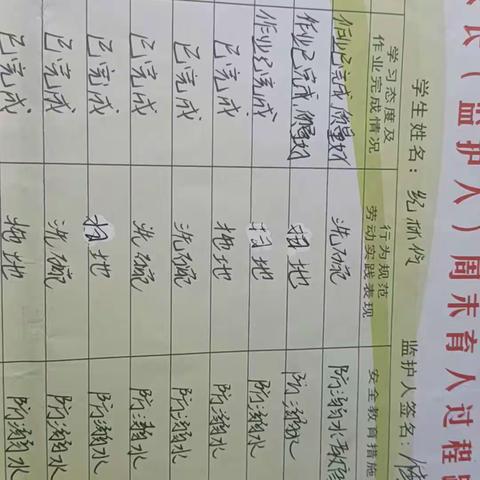 长（监护人）周末育人过程
学生姓名： 监护人签名：
学习态度及
作业完成情况
行为规范
劳动实践表现
安全教育措施
作业已完成,质量好 洗碗 防溺水教育
作业已完成,质量好 扫地 防溺水
作业已完成 扫地 防溺水
已完成 拖地 防溺水
已完成 洗碗 防溺水
已完成 洗碗 防溺水
已完成 扫地 防溺水
已完成 洗碗 防溺水
已完成 拖地 防溺水